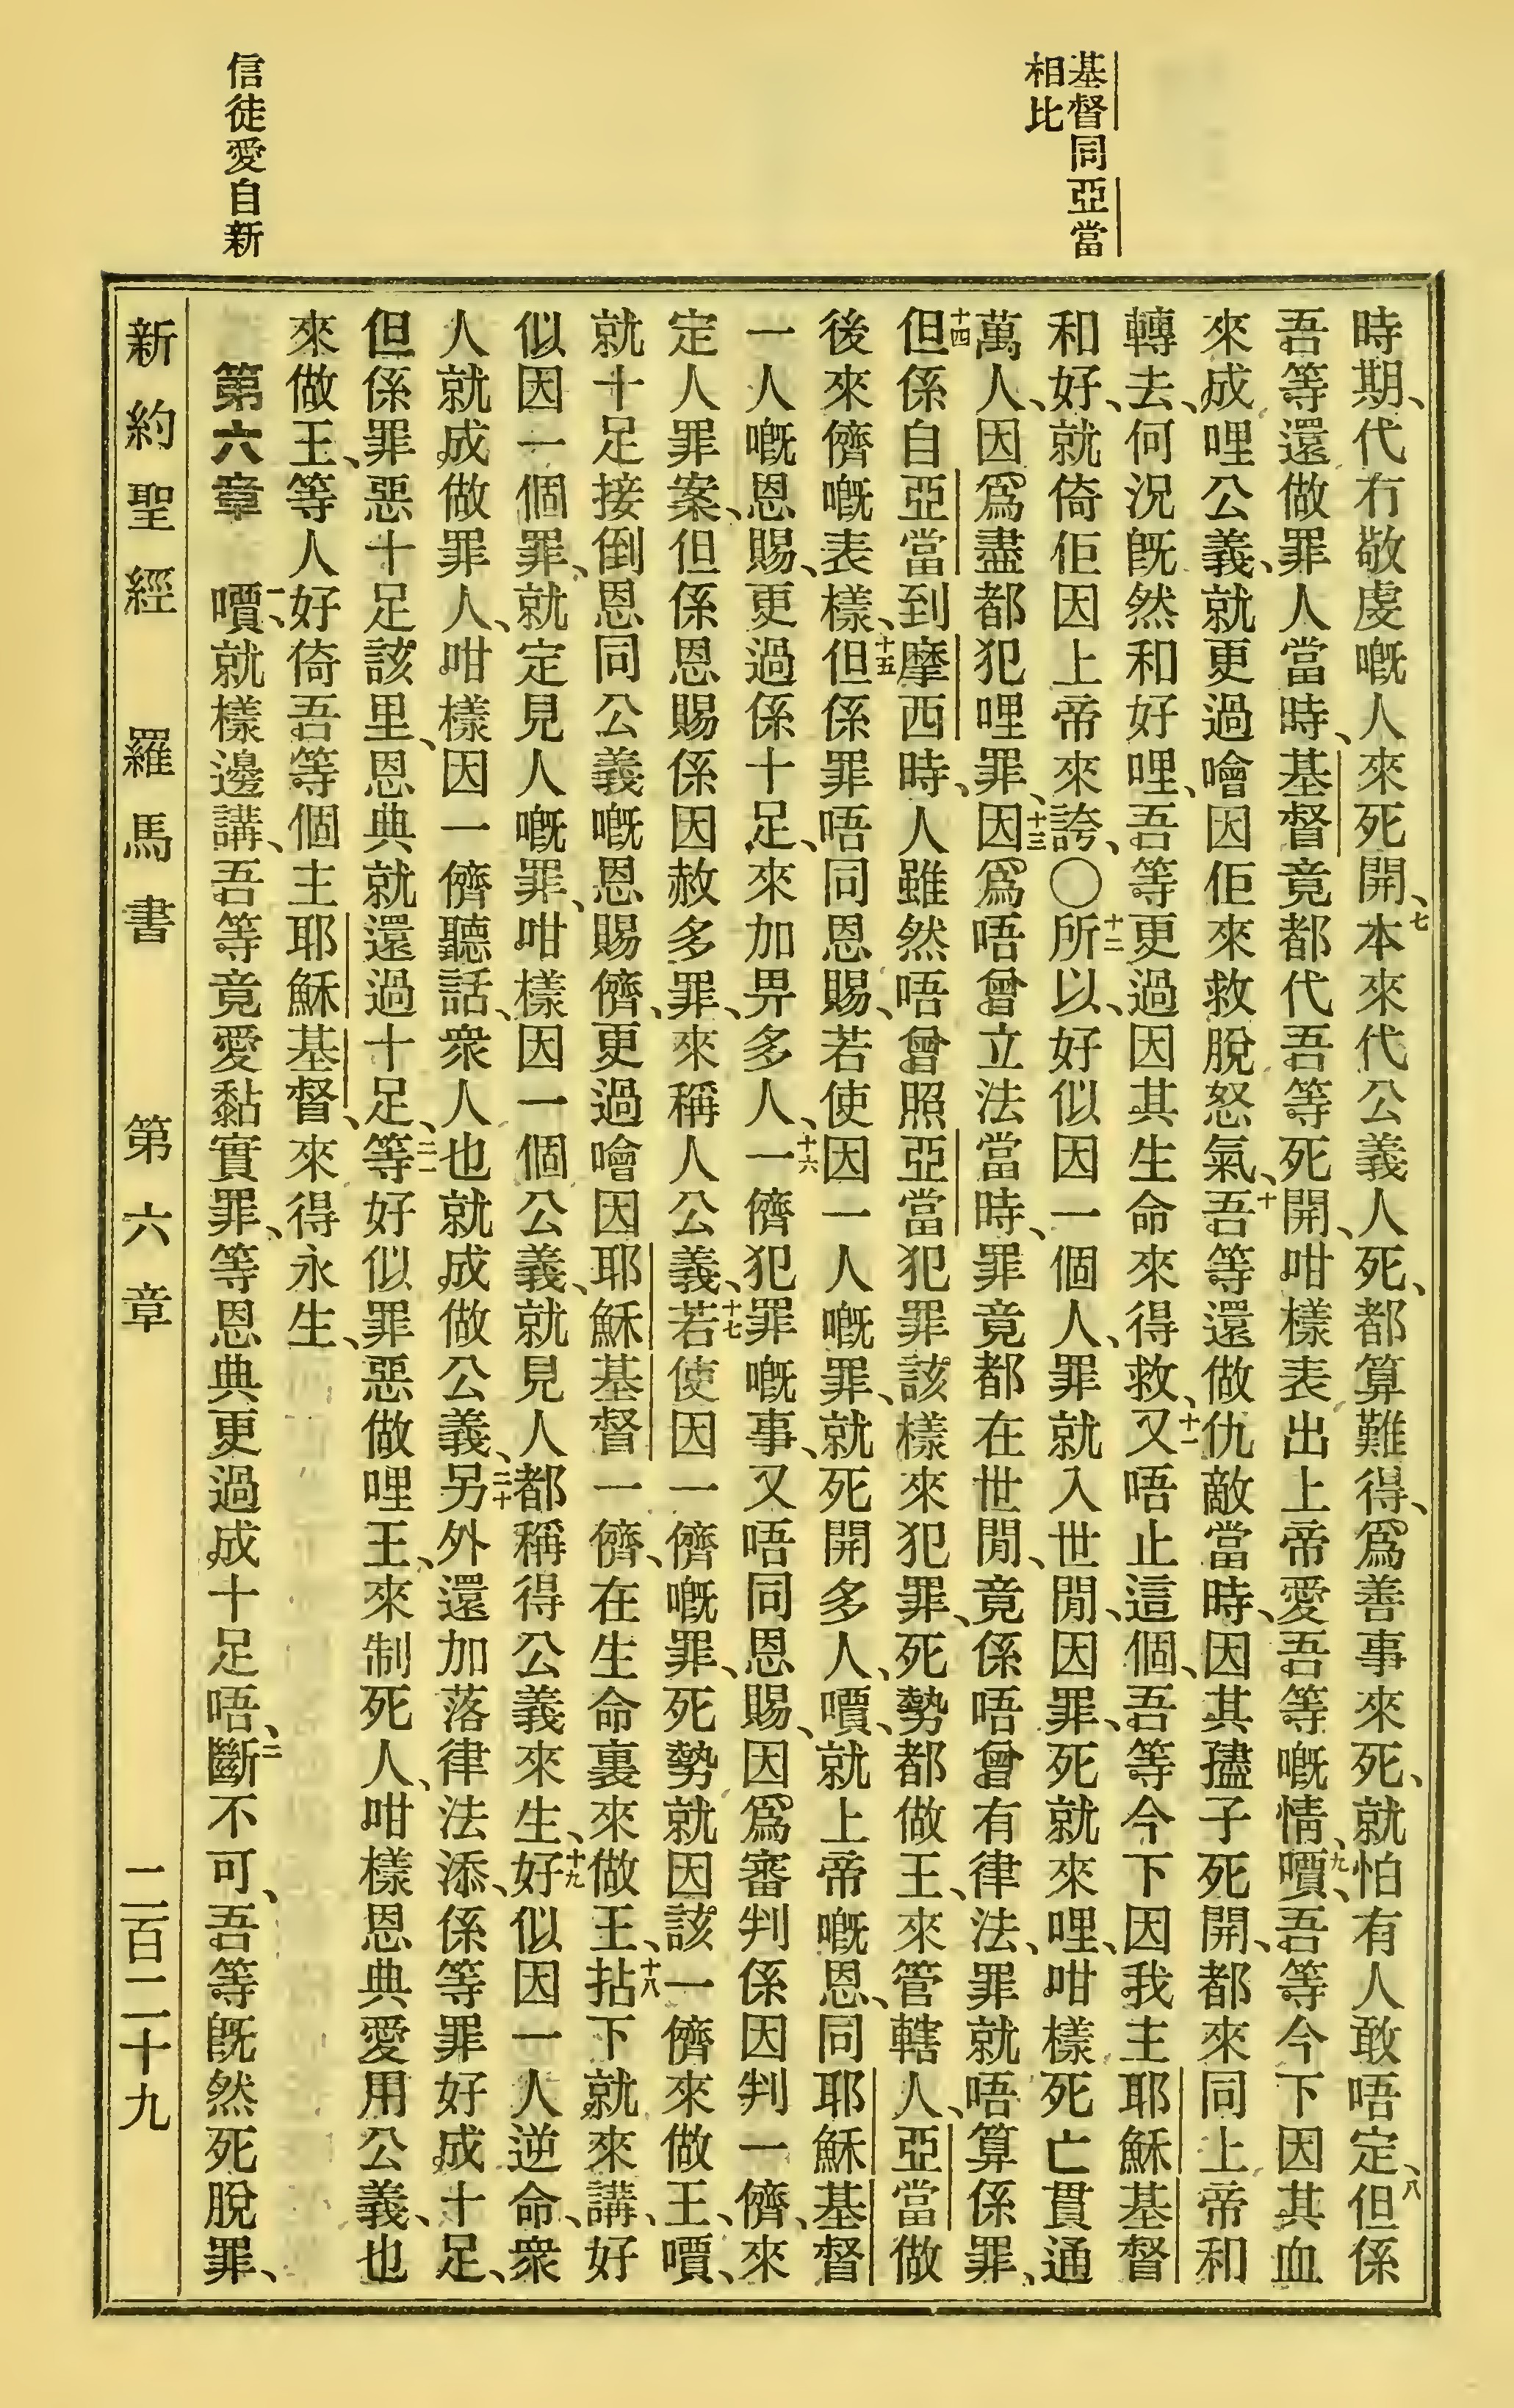 基督同亞當
相比
信徒愛自新
時期、代冇敬虔嘅人來死開、七本來代公義人死、都算難得、爲善事來死、就怕有人敢唔定、八但係
吾等還做罪人當時、基督竟都代吾等死開、咁樣表出上帝愛吾等嘅情、九嘳、吾等今下因其血
來成哩公義、就更過噲因佢來救脫怒氣、十吾等還做仇敵當時、因其孻子死開、都來同上帝和
轉去、何況旣然和好哩、吾等更過因其生命來得救、十一又唔止這個、吾等今下因我主耶穌基督
和好、就倚佢因上帝來誇、〇十二所以、好似因一個人、罪就入世間、因罪、死就來哩、咁樣死亡貫通
萬人、因爲盡都犯哩罪、十三因爲唔曾立法當時、罪竟都在世間、竟係唔曾有律法、罪就唔算係罪、
十四但係自亞當到摩西時、人雖然唔曾照亞當犯罪該樣來犯罪、死勢都做王、來管轄人、亞當做
後來儕嘅表樣、十五但係罪唔同恩賜、若使因一人嘅罪、就死開多人、嘳、就上帝嘅恩、同耶穌基督
一人嘅恩賜、更過係十足、來加畀多人、十六一儕犯罪嘅事、又唔同恩賜、因爲審判係因判一儕、來
定人罪案、但係恩賜係因赦多罪、來稱人公義、十七若使因一儕嘅罪、死勢就因該一儕來做王、嘳、
就十足接倒恩同公義嘅恩賜儕、更過噲因耶穌基督一儕、在生命裏來做王、十八拈下就來講、好
似因一個罪、就定見人嘅罪、咁樣因一個公義、就見人都稱得公義來生、十九好似因一人逆命、衆
人就成做罪人、咁樣因一儕聽話、衆人也就成做公義、二十另外還加落律法添、係等罪好成十足、
但係罪惡十足該里、恩典就還過十足、二一等好似罪惡做哩王、來制死人、咁樣恩典愛用公義、也
來做王、等人好倚吾等個主耶穌基督、來得永生、
第六章　一嘳、就樣邊講、吾等竟愛黏實罪、等恩典更過成十足唔、二斷不可、吾等旣然死脫罪、
新約聖經　羅馬書　第六章　二百二十九